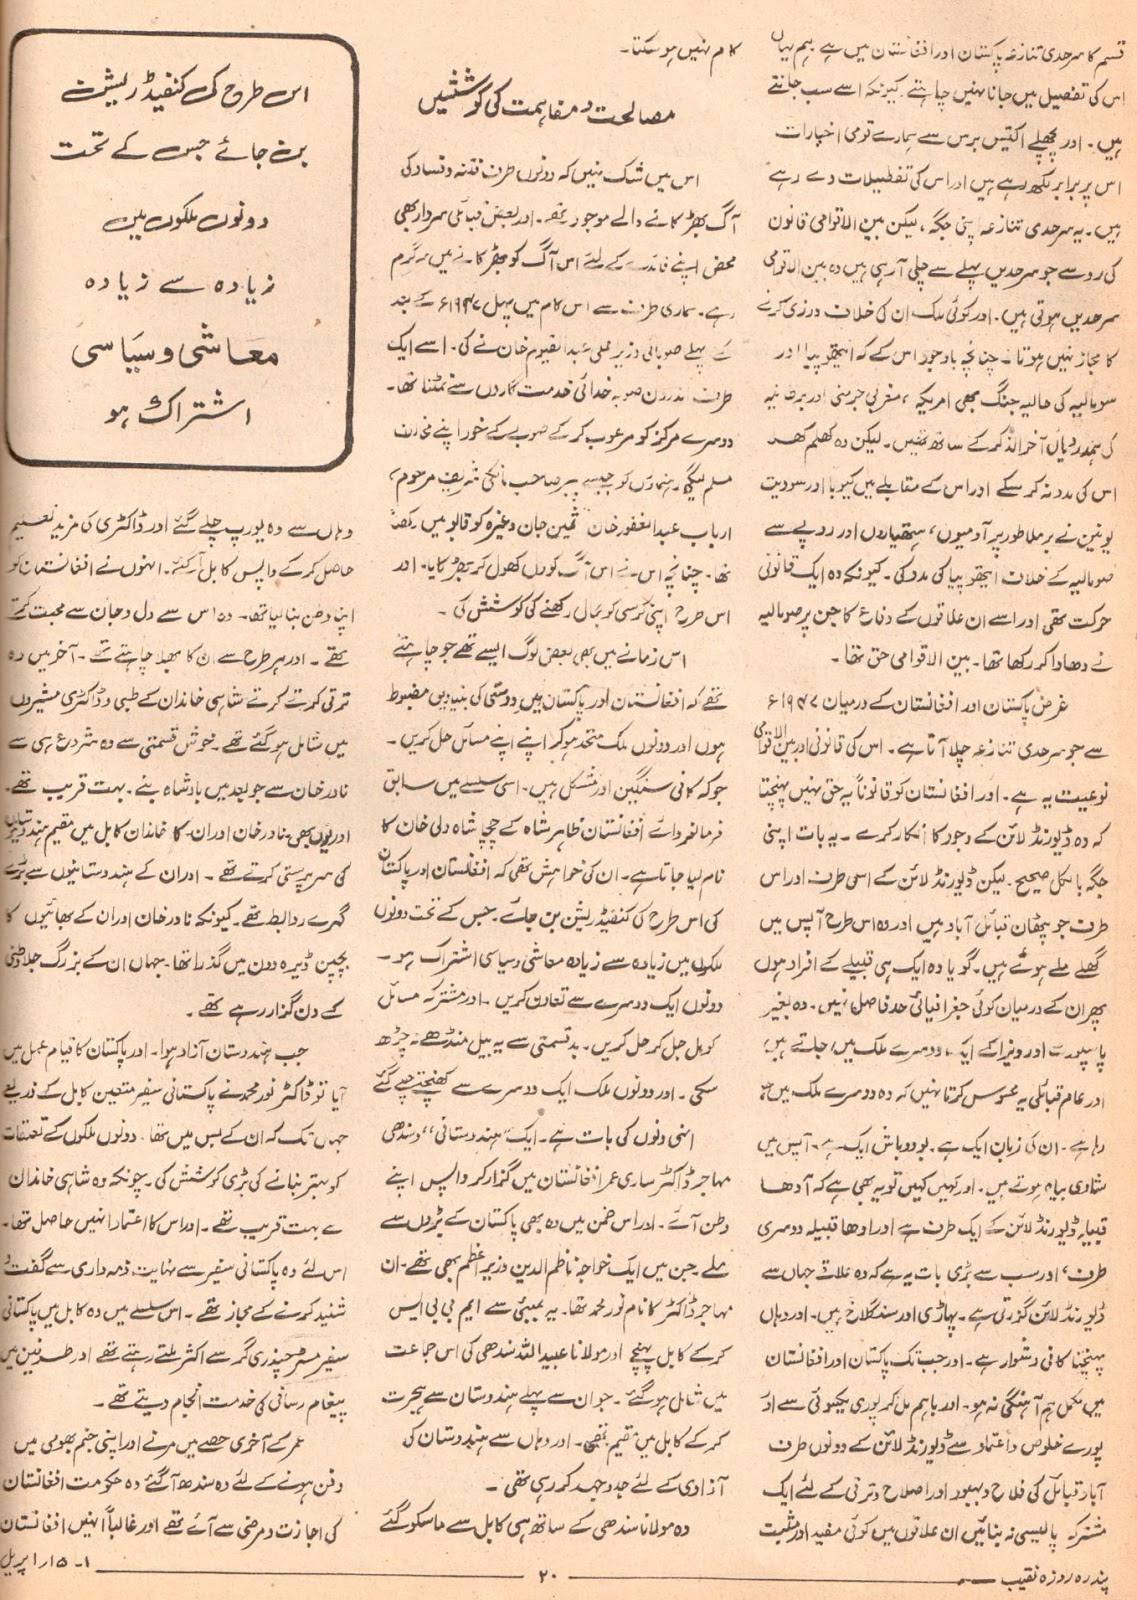 قسم کا سرحدی تنازعہ پاکستان اور افغانستان میں ہے ہم یہاں
اس کی تفصیل میں جانا نہیں چاہتے۔ کیونکہ اسے سب جانتے
ہیں۔ اور پچھلے اکتیس برس سے ہمارے قومی اخبارات
اس پر برابر لکھ رہے ہیں اور اس کی تفصیلات دے رہے
ہیں۔ یہ سرحدی تنازعہ اپنی جگہ، لیکن بین الاقوامی قانون
کی رو سے جو سرحدیں پہلے سے چلی آ رہی ہیں وہ بین الاقوامی
سرحدیں ہوتی ہیں۔ اور کوئی ملک ان کی خلاف ورزی کرنے
کا مجاز نہیں ہوتا۔ چنانچہ باوجود اس کے کہ ایتھوپیا اور
سومالیہ کی حالیہ جنگ بھی امریکہ، مغربی جرمنی اور برطانیہ
کی ہمدردیاں آخر الذکر کے ساتھ تھیں۔ لیکن وہ کھلم کھلا
اس کی مدد نہ کر سکے اور اس کے مقابلے میں کیوبا اور سوویت
یونین نے برملا طور پر آدمیوں، ہتھیاروں اور روپے سے
صومالیہ کے خلاف ایتھوپیا کی مدد کی۔ کیونکہ وہ ایک قانونی
حرکت تھی اور اسے ان علاقوں کے دفاع کا جن پر صومالیہ
نے دھاوا کر رکھا تھا۔ بین الاقوامی حق تھا۔
غرض پاکستان اور افغانستان کے درمیان ۱۹۴۷ء
سے جو سرحدی تنازعہ چلا آتا ہے۔ اس کی قانونی اور بین الاقوامی
نوعیت یہ ہے۔ اور افغانستان کو قانوناً یہ حق نہیں پہنچتا
کہ وہ ڈیورنڈ لائن کے وجود کا انکار کرے۔ یہ بات اپنی
جگہ بالکل صحیح۔ لیکن ڈیورنڈ لائن کے اسی طرف اور اس
طرف جو پٹھان قبائل آباد ہیں اور وہ اس طرح آپس میں
گھلے ملے ہوئے ہیں۔ گویا وہ ایک ہی قبیلے کے افراد ہوں
پھر ان کے درمیان کوئی جغرافیائی حد فاصل نہیں۔ وہ بغیر
پاسپورٹ اور ویزا کے ایک دوسرے ملک میں جاتے ہیں،
اور عام قبائلی یہ محسوس کرتا نہیں کہ وہ دوسرے ملک میں جا
رہا ہے۔ ان کی زبان ایک ہے۔ بود و باش ایک ہے۔ آپس میں
شادی بیاہ ہوتے ہیں۔ اور کہیں کہیں تو یہ بھی ہے کہ آدھا
قبیلہ ڈیورنڈ لائن کے ایک طرف ہے اور اودھا قبیلہ دوسری
طرف، اور سب سے بڑی بات یہ ہے کہ وہ علاقہ جہاں سے
ڈیورنڈ لائن گزرتی ہے۔ پہاڑی اور سنگلاخ ہیں۔ اور وہاں
پہنچنا کافی دشوار ہے۔ اور جب تک پاکستان اور افغانستان
میں مکمل ہم آہنگی نہ ہو۔ اور باہم مل کر پوری یکسوئی سے اور
پورے خلوص و اعتماد سے ڈیورنڈ لائن کے دونوں طرف
آباد قبائل کی فلاح و بہبود اور اصلاح و ترقی کے لئے ایک
مشترکہ پالیسی نہ بنائیں ان علاقوں میں کوئی مفید اور مثبت
کام نہیں ہو سکتا۔
مصالحت و مفاہمت کی کوششیں
اس میں شک نہیں کہ دونوں طرف فتنہ و فساد کی
آگ بھڑکانے والے موجود تھے۔ اور بعض قبائلی سردار بھی
محض اپنے فائدے کے لئے اس آگ کو بھڑکانے میں سرگرم
رہے۔ ہماری طرف سے اس کام میں پہل ۱۹۴۷ء کے بعد
کے پہلے صوبائی وزیر اعلیٰ عبدالقیوم خان نے کی۔ اسے ایک
طرف اندرون صوبہ خدائی خدمت گاروں سے نمٹنا تھا۔
دوسرے مرکز کو مرعوب کر کے صوبے کے خود اپنے مخالف
مسلم لیگی رہنماؤں کو جیسے پیر صاحب مانکی شریف مرحوم،
ارباب عبدالغفور خان ثمین جان وغیرہ کو قابو میں رکھنا
تھا۔ چنانچہ اس نے اس آگ کو دل کھول کر بھڑکایا۔ اور
اس طرح اپنی کرسی کو بحال رکھنے کی کوشش کی۔
اس زمانے میں بھی بعض لوگ ایسے تھے جو چاہتے
تھے کہ افغانستان اور پاکستان میں دوستی کی بنیادیں مضبوط
ہوں اور دونوں ملک متحد ہو کر اپنے اپنے مسائل حل کریں۔
جو کہ کافی سنگین اور مشکل ہیں۔ اسی سلسلے میں سابق
فرمانفروائے افغانستان ظاہر شاہ کے چچا شاہ ولی خان کا
نام لیا جاتا ہے۔ ان کی خواہش تھی کہ افغانستان اور پاکستان
کی اس طرح کی کنفیڈریشن بن جائے۔ جس کے تحت دونوں
ملکوں میں زیادہ سے زیادہ معاشی و سیاسی اشتراک ہو۔
دونوں ایک دوسرے سے تعاون کریں۔ اور مشترکہ مسائل
کو مل جل کر حل کریں۔ بدقسمتی سے یہ بیل منڈھے نہ چڑھ
سکی۔ اور دونوں ملک ایک دوسرے سے کھنچتے چلے گئے
انہی دنوں کی بات ہے۔ ایک ہندوستانی، سندھی
مہاجر ڈاکٹر ساری عمر افغانستان میں گزار کر واپس اپنے
وطن آئے۔ اور اس ضمن میں وہ بھی پاکستان کے بڑوں سے
ملے۔ جن میں ایک خواجہ ناظم الدین وزیر اعظم بھی تھے۔ ان
مہاجر ڈاکٹر کا نام نور محمد تھا۔ یہ بمبئی سے ایم بی بی ایس
کر کے کابل پہنچے اور مولانا عبید اللہ سندھی کی اس جماعت
میں شامل ہو گئے۔ جو ان سے پہلے ہندوستان سے ہجرت
کر کے کابل میں مقیم تھی۔ اور وہاں سے ہندوستان کی
آزادی کے لئے جدوجہد کر رہی تھی۔
وہ مولانا سندھی کے ساتھ ہی کابل سے ماسکو گئے
اس طرح کی کنفیڈریشن
بن جائے جس کے تحت
دونوں ملکوں میں
زیادہ سے زیادہ
معاشی و سیاسی
اشتراک ہو
وہاں سے وہ یورپ چلے گئے اور ڈاکٹری کی مزید تعلیم
حاصل کر کے واپس کابل آ گئے۔ انہوں نے افغانستان کو
اپنا وطن بنا لیا تھا۔ وہ اس سے دل و جان سے محبت کرتے
تھے۔ اور ہر طرح سے ان کا بھلا چاہتے تھے۔ آخر میں وہ
ترقی کرتے کرتے شاہی خاندان کے طبی و ڈاکٹری مشیروں
میں شامل ہو گئے تھے۔ خوش قسمتی سے وہ شروع ہی سے
نادر خان سے جو بعد میں بادشاہ بنے۔ بہت قریب تھے۔
اور یوں بھی نادر خان اور ان کا خاندان کابل میں مقیم ہندوستانیوں
کی سرپرستی کرتے تھے۔ اور ان کے ہندوستانیوں سے بڑے
گہرے روابط تھے۔ کیونکہ نادر خان اور ان کے بھائیوں کا
بچپن ڈیرہ دون میں گذرا تھا۔ جہاں ان کے بزرگ جلاوطنی
کے دن گذار رہے تھے۔
جب ہندوستان آزاد ہوا۔ اور پاکستان کا قیام عمل میں
آیا تو ڈاکٹر نور محمد نے پاکستانی سفیر متعین کابل کے ذریعے
جہاں تک کہ ان کے بس میں تھا۔ دونوں ملکوں کے تعلقات
کو بہتر بنانے کی بڑی کوشش کی۔ چونکہ وہ شاہی خاندان
سے بہت قریب تھے۔ اور اس کا اعتماد انہیں حاصل تھا۔
اس لئے وہ پاکستانی سفیر سے نہایت ذمہ داری سے گفت و
شنید کرنے کے مجاز تھے۔ اس سلسلے میں وہ کابل میں پاکستانی
سفیر مسٹر چندریگر سے اکثر ملتے رہتے تھے اور طرفین میں
پیغام رسانی کی خدمت انجام دیتے تھے۔
عمر کے آخری حصے میں مرنے اور اپنی جنم بھومی میں
دفن ہونے کے لئے وہ سندھ آ گئے وہ حکومت افغانستان
کی اجازت و مرضی سے آئے تھے اور غالباً انہیں افغانستان
پندرہ روزہ نقیب
۲۰
۱۔ ۱۵ اپریل